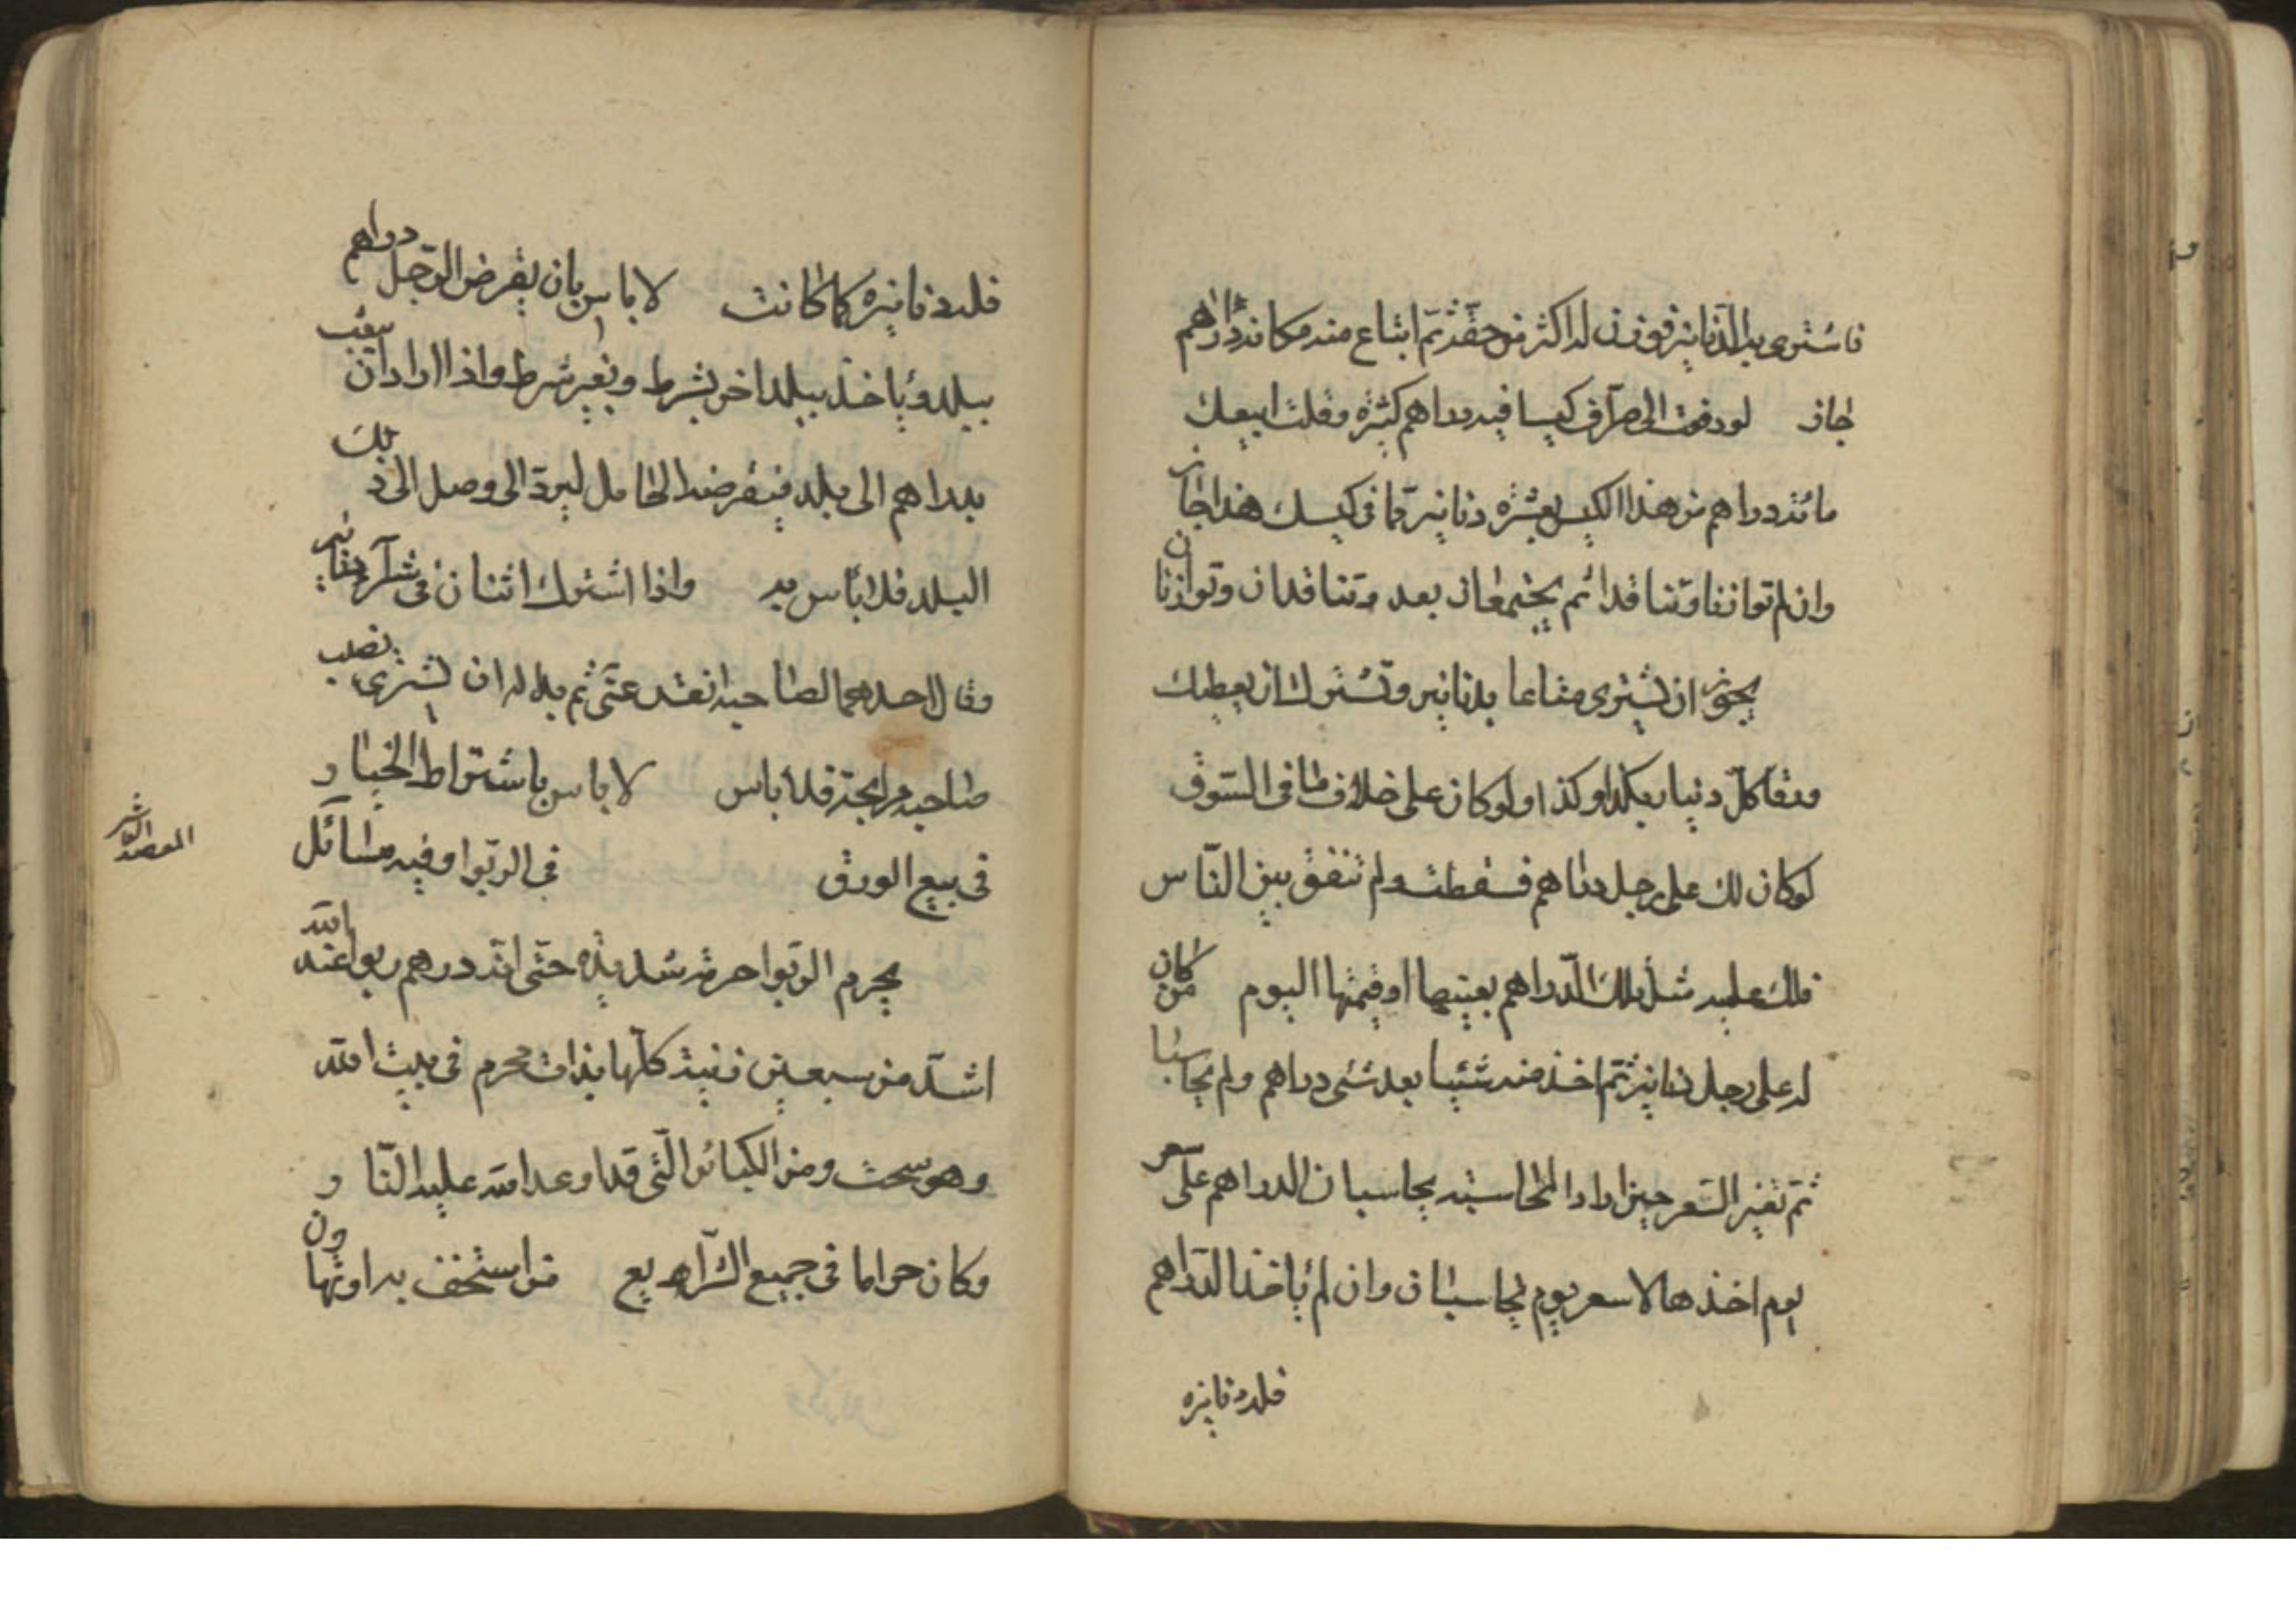 فاشترى به الدنانير فوزن له اكثر من حقه ثم ابتاع منه مكانه دراهم
جاز لو دفعت الى صراف كيسا فيه دراهم كثيرة وقلت ابيعك
مائة دراهم من هذا الكيس بعشرة دنانير مما في كيسك هذا جاز
وان لم توازنا وتناقدا ثم يجتمعان بعد وتناقدان وتوازنان
يجوز ان يشترى متاعا بدنانير وتشترك ان يعطيك
ورقا كل دينار بكذا وكذا ولو كان على خلاف ما في السوق
لو كان لك على رجل دراهم فسقطت ولم تنفق بين الناس
فلك عليه مثل تلك الدراهم بعينها او قيمتها اليوم من كان
له على رجل دنانير ثم اخذ منه شيئا بعد شئى دراهم ولم يحاسبا
ثم تغير السعر حين ارادا المحاسبة يحاسبان الدراهم على سعر
يوم اخذها لا سعر يوم يحاسبان وان لم يأخذ الدراهم
فله دنانيره
فله دنانيره كما كانت لا باس بان يقرض الرجل دراهم
ببلد و يأخذ ببلد اخر بشرط و بغير شرط واذا اراد ان يبعث
بدراهم الى بلد فيقرضه الحامل ليرد الى وصل الى ذلك
البلد فلا بأس به واذا اشترك اثنان في شرآء دنانير
وقال احدهما لصاحبه انقد عنى ثم بدا له ان يشترى نصيب
صاحبه مرابحة فلا باس لا باس باشتراط الخيار
في بيع الورق في الربوا وفيه مسائل
المقصد العاشر
يحرم الربوا حرمة شديدة حتى انه درهم ربوا عند الله
اشد من سبعين زنية كلها بذات محرم في بيت الله
وهو سحت ومن الكبائر التى قد اوعد الله عليه النار
وكان حراما في جميع الشرآيع من استخف به اوتهاون